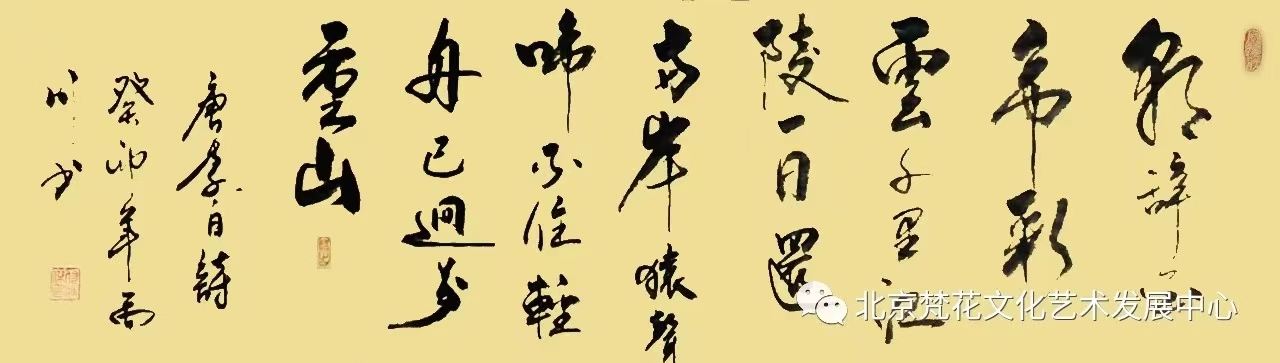 朝辞白
帝彩
雲千里江
陵一日還
両岸猿聲
啼不住輕
舟已過万
重山
唐李白詩
癸卯年雨
书
北京梵花文化艺术发展中心